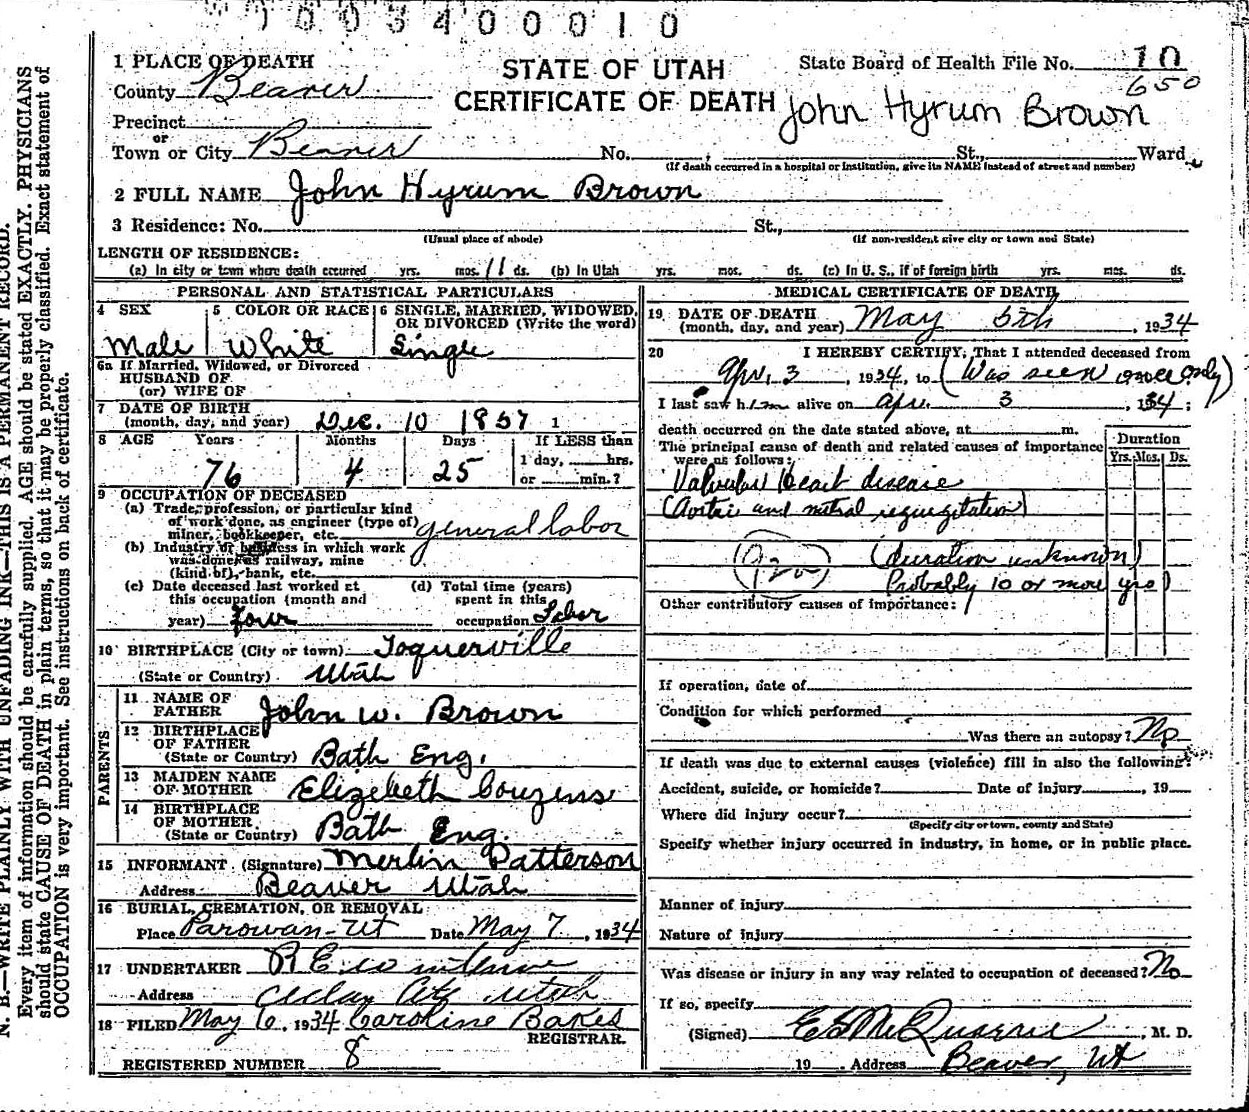 0003400010
1 PLACE OF DEATH
County Beaver
STATE OF UTAH
CERTIFICATE OF DEATH
State Board of Health File No. 10
650
John Hyrum Brown
Precinct
or
Town or City Beaver No. St., Ward
(If death occurred in a hospital or institution, give its NAME instead of street and number)
2 FULL NAME John Hyrum Brown
3 Residence: No. St.,
(Usual place of abode) (If non-resident give city or town and State)
LENGTH OF RESIDENCE:
(a) In city or town where death occurred yrs. mos. 11 ds. (b) In Utah yrs. mos. ds. (c) In U. S., if of foreign birth yrs. mos. ds.
PERSONAL AND STATISTICAL PARTICULARS
4 SEX
Male
5 COLOR OR RACE
White
6 SINGLE, MARRIED, WIDOWED,
OR DIVORCED (Write the word)
Single
6a If Married, Widowed, or Divorced
HUSBAND OF
(or) WIFE OF
7 DATE OF BIRTH
(month, day, and year) Dec. 10 1857 1
8 AGE Years Months Days If LESS than
1 day, hrs.
76 4 25 or min.?
9 OCCUPATION OF DECEASED
(a) Trade, profession, or particular kind
of work done, as engineer (type of)
miner, bookkeeper, etc. general labor
(b) Industry or business in which work
was done, as railway, mine
(kind of), bank, etc.
(c) Date deceased last worked at
this occupation (month and
year) Four
(d) Total time (years)
spent in this
occupation Labor
10 BIRTHPLACE (City or town) Toquerville
(State or Country) Utah
PARENTS
11 NAME OF
FATHER John W. Brown
12 BIRTHPLACE
OF FATHER
(State or Country) Bath Eng.
13 MAIDEN NAME
OF MOTHER Elizebeth Couzens
14 BIRTHPLACE
OF MOTHER
(State or Country) Bath Eng.
15 INFORMANT (Signature) Merlin Patterson
Address Beaver Utah
16 BURIAL, CREMATION, OR REMOVAL
Place Parowan-Ut Date May 7, 1934
17 UNDERTAKER
Address Cedar City Utah
18 FILED May 6, 1934 Caroline Bakes
REGISTRAR.
REGISTERED NUMBER 8
MEDICAL CERTIFICATE OF DEATH
19 DATE OF DEATH
(month, day, and year) May 5th, 1934
20 I HEREBY CERTIFY, That I attended deceased from
Apr. 3, 1934, to (Was seen once only)
I last saw him alive on Apr. 3, 1934;
death occurred on the date stated above, at m.
The principal cause of death and related causes of importance
were as follows:
Duration
Yrs. Mos. Ds.
Valvular Heart disease
(Aortic and mitral regurgitation)
(duration unknown)
Probably 10 or more yrs)
Other contributory causes of importance:
If operation, date of
Condition for which performed
Was there an autopsy? No
If death was due to external causes (violence) fill in also the following:
Accident, suicide, or homicide? Date of injury , 19
Where did injury occur?
(Specify city or town, county and State)
Specify whether injury occurred in industry, in home, or in public place.
Manner of injury
Nature of injury
Was disease or injury in any way related to occupation of deceased? No
If so, specify
(Signed) McQuarrie, M. D.
19 Address Beaver, Ut
N. B.—WRITE PLAINLY WITH UNFADING INK—THIS IS A PERMANENT RECORD.
Every item of information should be carefully supplied. AGE should be stated EXACTLY. PHYSICIANS
should state CAUSE OF DEATH in plain terms, so that it may be properly classified. Exact statement of
OCCUPATION is very important. See instructions on back of certificate.